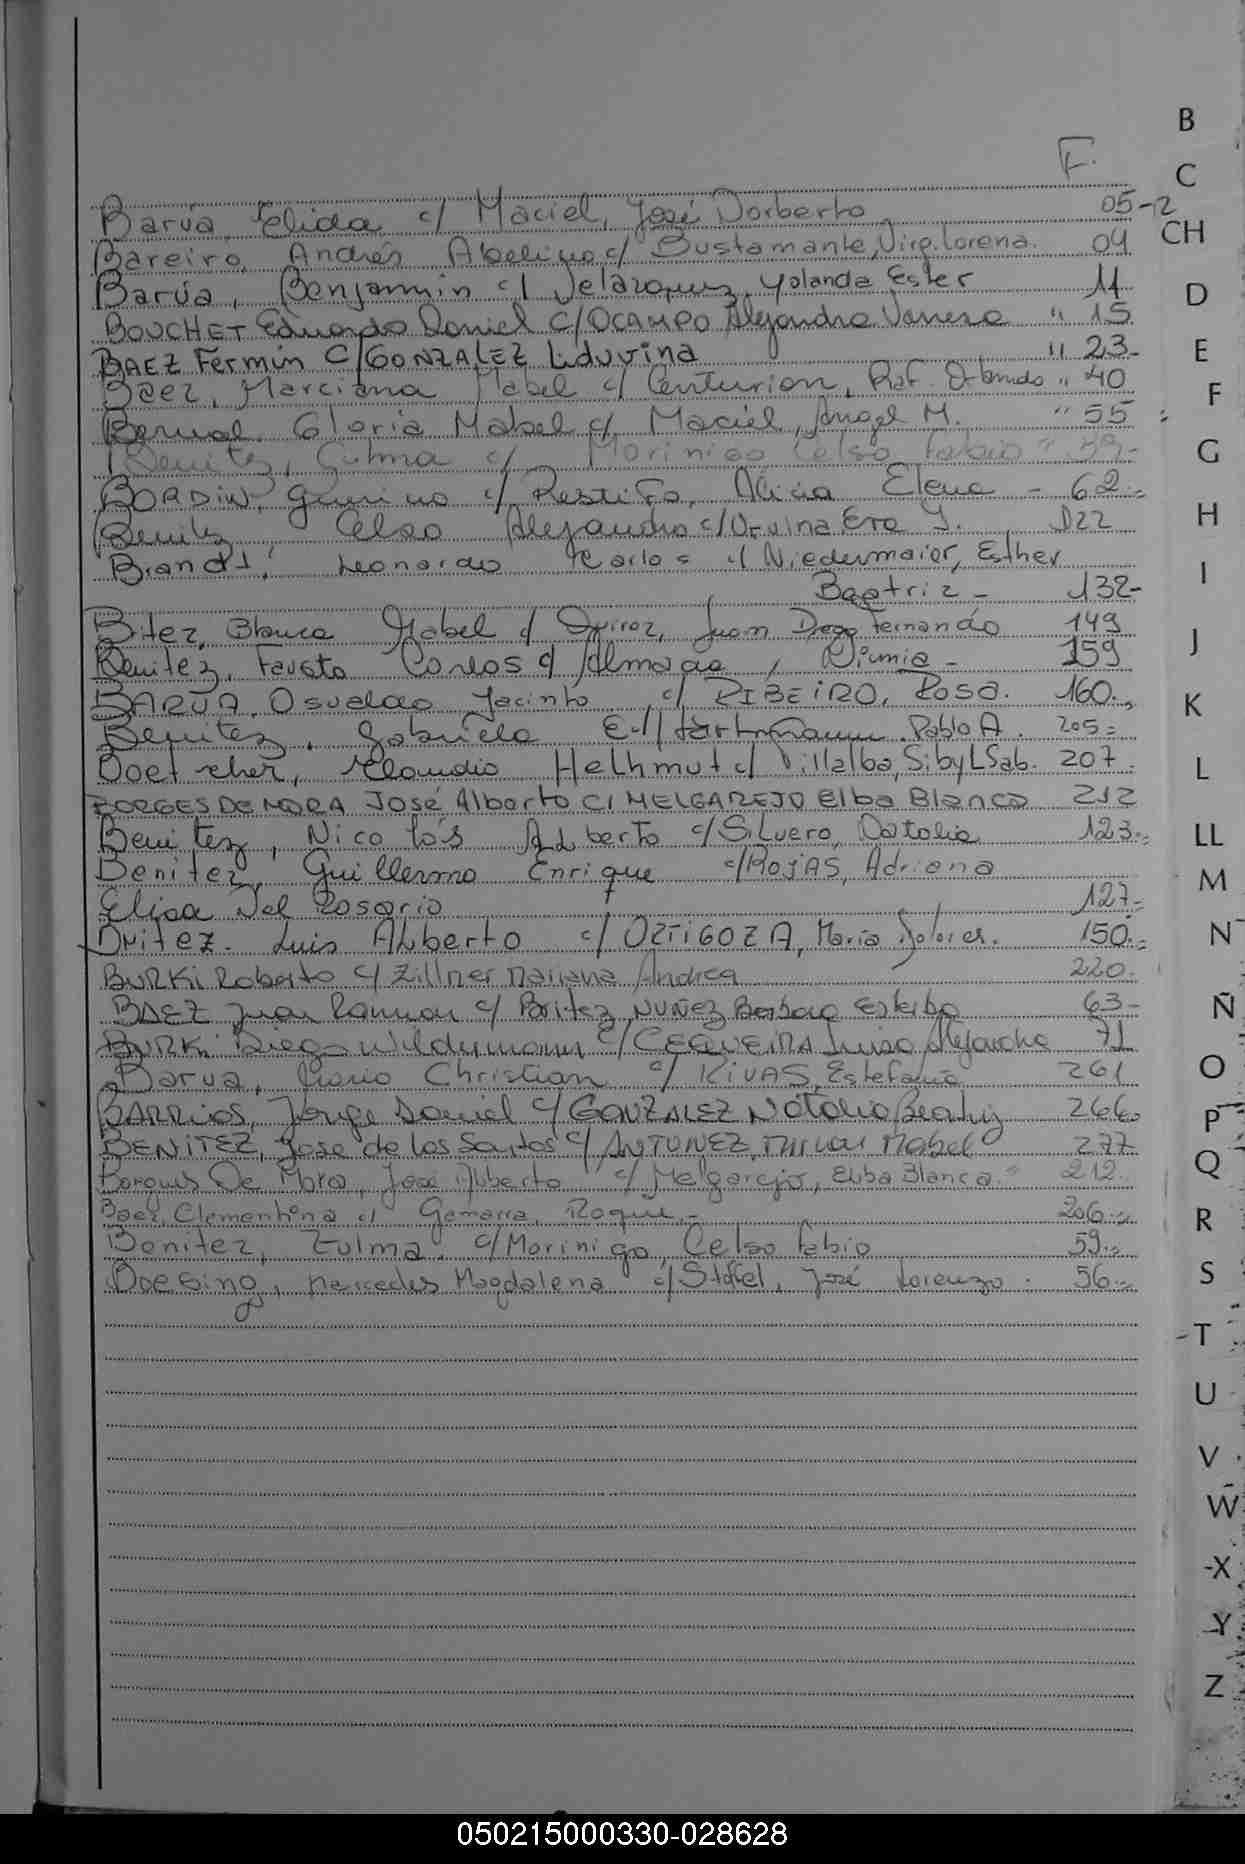 F.
Barúa, Elida c/ Maciel, José Norberto 05-2
Bareiro, Andrés Abelino c/ Bustamante, Virg. Lorena. 04
Barúa, Benjamin c/ Velázquez, Yolanda Ester 11
BOUCHET Eduardo Daniel C/OCAMPO Alejandra Vanesa " 15
BAEZ Fermin C/GONZALEZ Liduvina " 23-
Baez, Marciana Mabel c/ Centurion, Raf. Orlando " 40
Bernal. Gloria Mabel c/ Maciel, Angel M. " 55
Benitez, c/ Morinigo Celso Fabio " 59-
BORDIN, Guerino c/ Restifo, Alicia Elena - 62
Benitez Celso Alejandro c/ Eva Y. 122
Brandt, Leonardo Carlos c/ Niedermaier, Esther
Beatriz - 132-
Bitez, Blanca Mabel c/ Quiroz, Juan Diego Fernando 149
Benitez, Fausto Carlos c/ Almada, Nimia - 159
BARÚA, Osvaldo Jacinto c/ RIBEIRO, Rosa. 160.
Benitez, Gabriela E. c/ Hartmann Pablo A. 205=
Boetcher, Claudio Helhmut c/ Villalba, Sibyl Sab. 207
BORGES DE MORA José Alberto C/ MELGAREJO Elba Blanca 212
Benitez, Nicolás Alberto c/Silvero, Natalia 123
Benitez, Guillermo Enrique c/ROJAS, Adriana
Elisa Del Rosario 127
Britez. Luis Alberto c/ ORTIGOZA, Maria Dolores. 150
BURKI Roberto c/ Zillner Mariana Andrea 220.
BAEZ Juan Ramon c/ Britez NUÑEZ Barbara Esterba 63-
BURKi Diego Wildermann c/CEQUEIRA Luisa Alejandra 71
Barua, Mario Christian c/ RIVAS, Estefania 261
BARRIOS, Jorge Daniel c/ GONZALEZ Natalia Beatriz 266
BENITEZ, Jose de los Santos c/ ANTUNEZ, Mirian Mabel 277
Borgues De Mora, José Alberto c/ Melgarejo, Elba Blanca " 212
Baez, Clementina c/ Gamarra, Roque - 206
Benitez, Zulma c/Morinigo, Celso Fabio 59
Doesing, Mercedes Magdalena c/ Stofel, José Lorenzo. 56
B
C
CH
D
E
F
G
H
I
J
K
L
LL
M
N
Ñ
O
P
Q
R
S
T
U
V
W
X
Y
Z
050215000330-028628